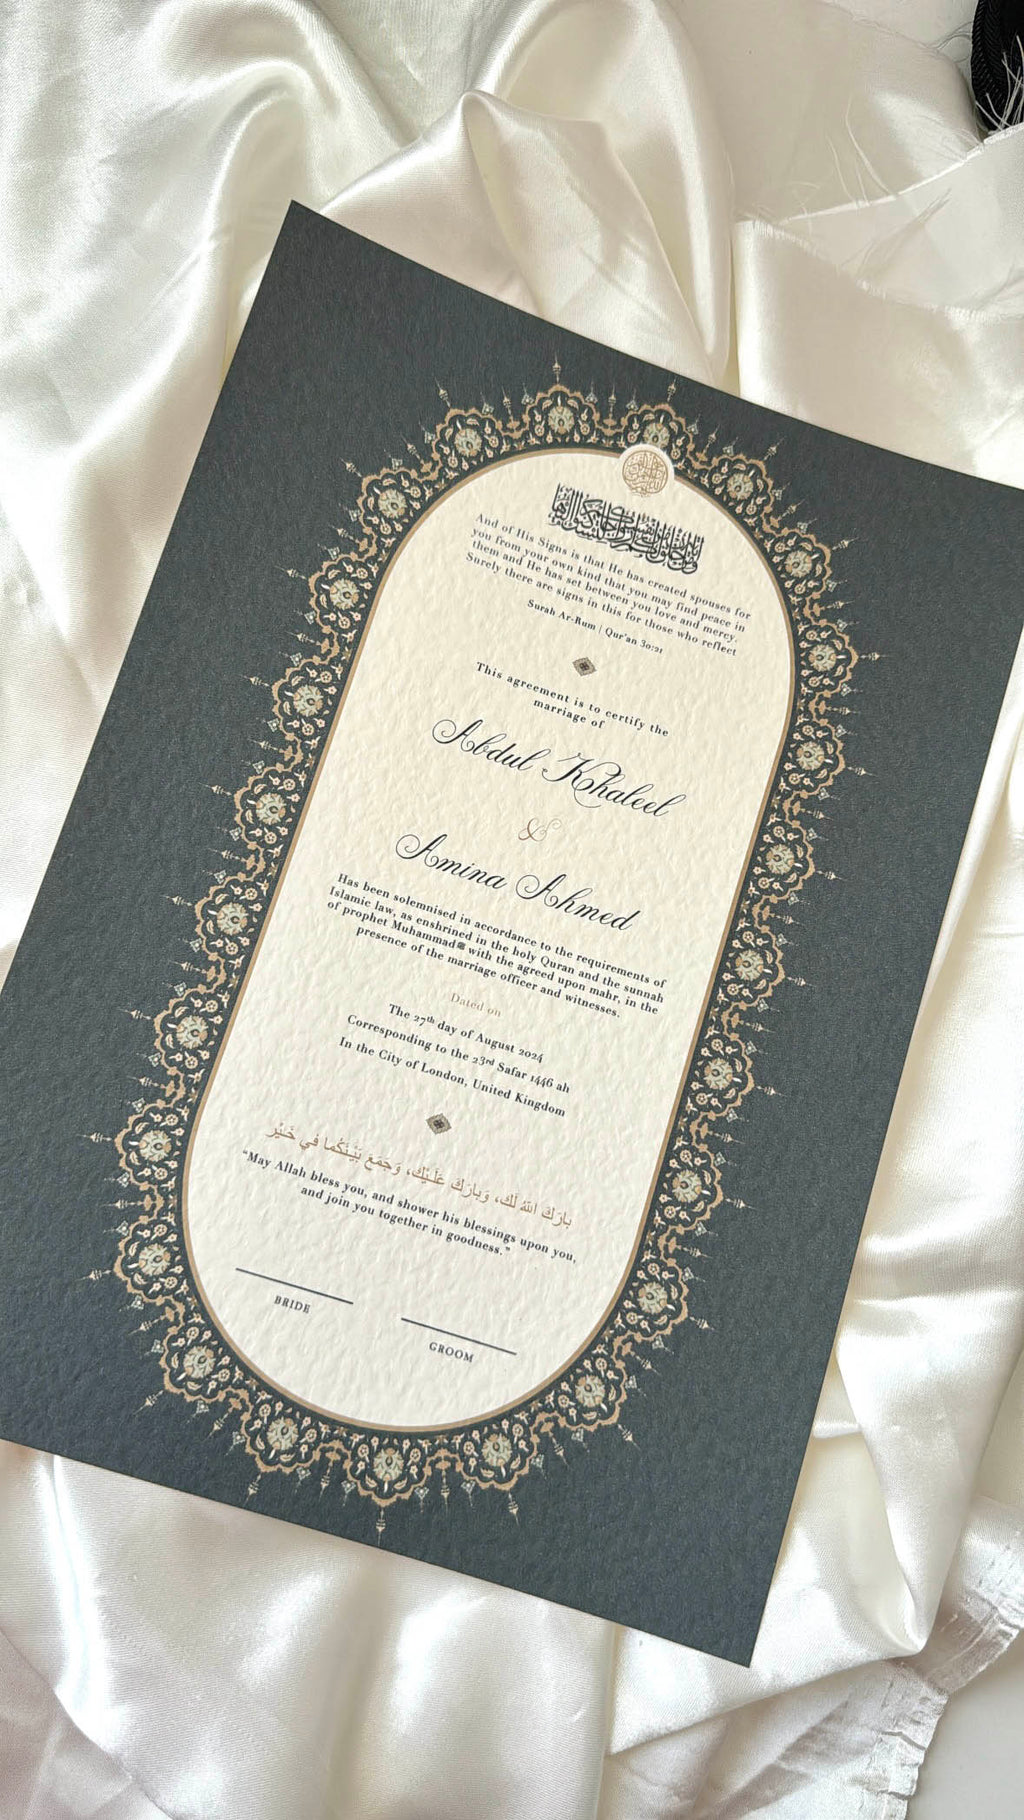 And of His Signs is that He has created spouses for
you from your own kind that you may find peace in
them and He has set between you love and mercy.
Surely there are signs in this for those who reflect
Surah Ar-Rum | Qur'an 30:21
This agreement is to certify the
marriage of
Abdul Khaleel
&
Amina Ahmed
Has been solemnised in accordance to the requirements of
Islamic law, as enshrined in the holy Quran and the sunnah
of prophet Muhammadﷺ with the agreed upon mahr, in the
presence of the marriage officer and witnesses.
Dated on
The 27th day of August 2024
Corresponding to the 23rd Safar 1446 ah
In the City of London, United Kingdom
بارَكَ اللهُ لَكَ، وَبارَكَ عَلَـيْك، وَجَمَعَ بَيْـنَكُما في خَـيْر
“May Allah bless you, and shower his blessings upon you,
and join you together in goodness.”
BRIDE
GROOM